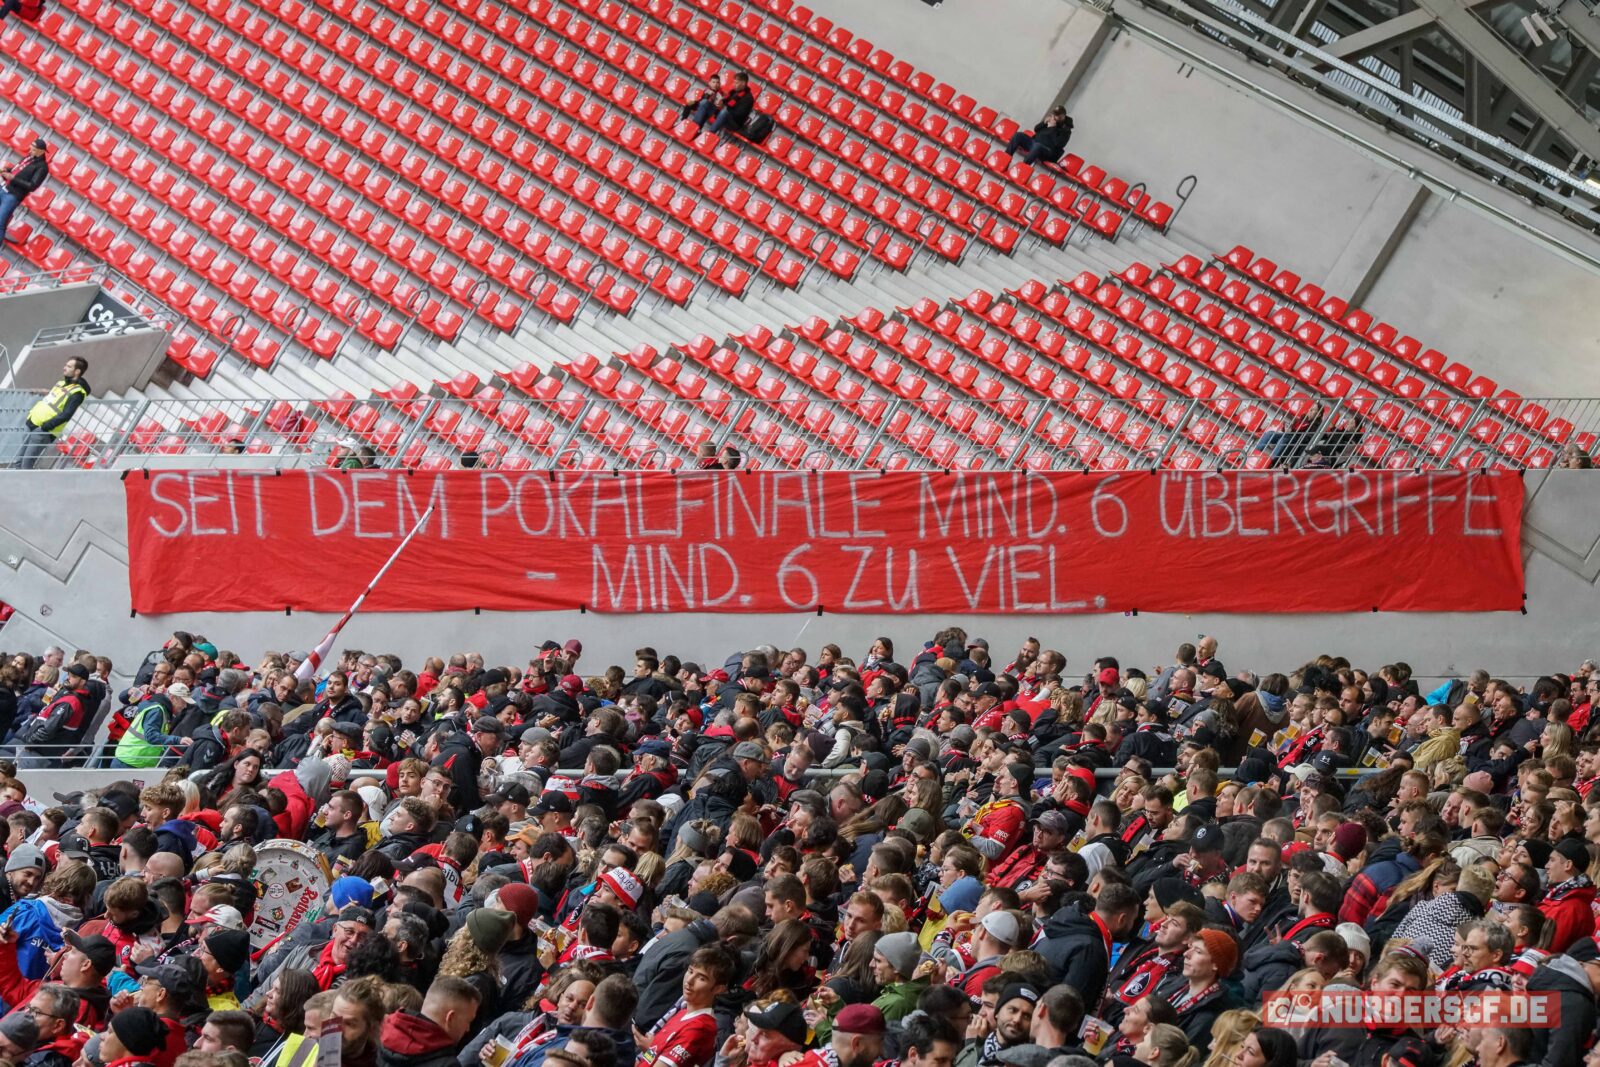 SEIT DEM POKALFINALE MIND. 6 ÜBERGRIFFE
- MIND. 6 ZU VIEL.
NURDERSCF.DE